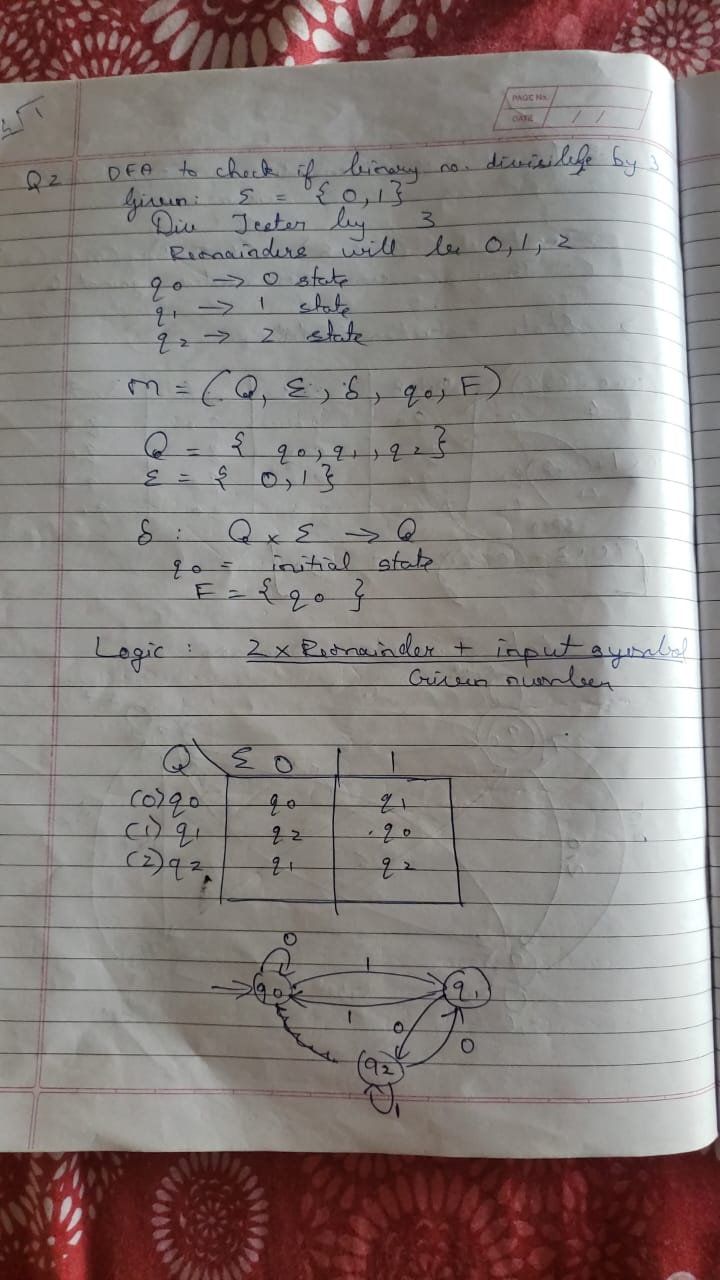 PAGE No.
DATE / /
Q2 DFA to check if binary no. divisible by 3
Given: Σ = {0,1}
Div Tester by 3
Remainders will be 0, 1, 2
q0 → 0 state
q1 → 1 state
q2 → 2 state
m = (Q, Σ, δ, q0, F)
Q = { q0, q1, q2}
Σ = { 0,1}
δ : Q x Σ → Q
q0 = initial state
F = {q0}
Logic : 2 x Remainder + input symbol
Given number
Q \ Σ 0 | 1
(0) q0 q0 q1
(1) q1 q2 q0
(2) q2 q1 q2
0
1
q0 q1
1
0
0
q2
1